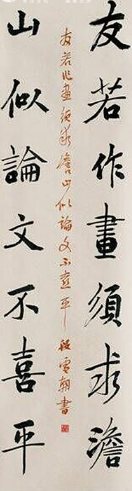 友若作畫須求澹
山似論文不喜平
友若作畫須求澹山似論文不喜平